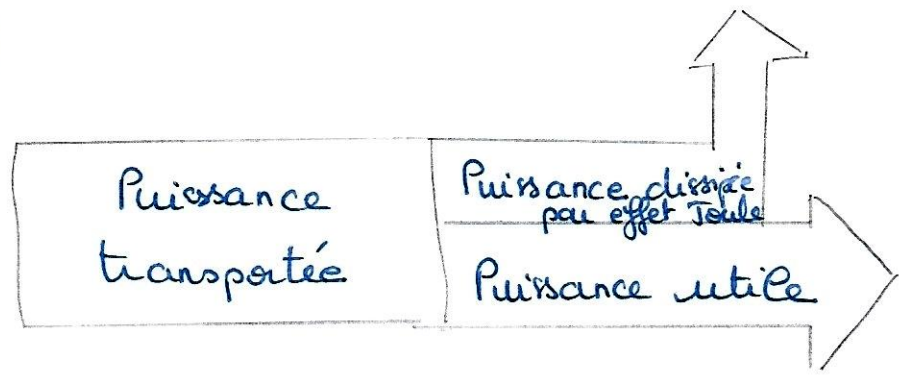 Puissance
transportée
Puissance dissipée
par effet Joule
Puissance utile